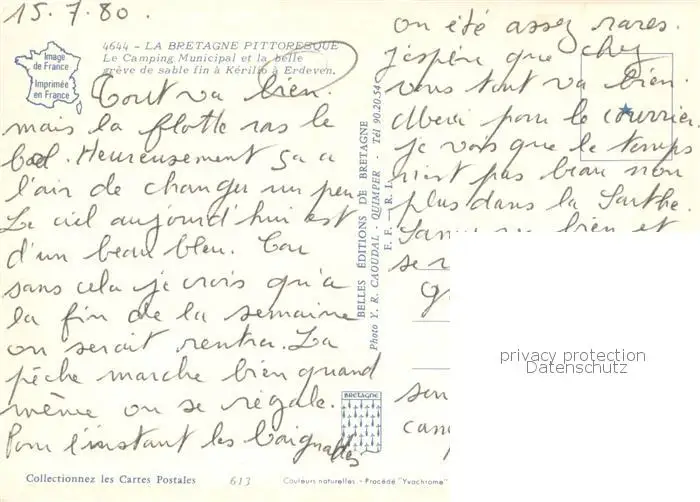 15.7.80.
Image
de France
Imprimée
en France
4644 - LA BRETAGNE PITTORESQUE
Le Camping Municipal et la belle
grève de sable fin à Kérillio à Erdeven.
Tout va bien.
mais la flotte ras le
bol. Heureusement ça a
l'air de changer un peu
Le ciel aujourd'hui est
d'un beau bleu. Car
sans cela je crois qu'à
la fin de la semaine
on serait rentré. La
pêche marche bien quand
même on se régale.
Pour l'instant les baignades
on été assez rares.
j'espère que chez
vous tout va bien.
Merci pour le courrier.
je vois que le temps
n'est pas beau non
plus dans la Sarthe.
bien et
se
son
BELLES ÉDITIONS DE BRETAGNE
Photo Y. R. CAOUDAL - QUIMPER - Tél 90.20.54
F. F. - R. I.
BRETAGNE
Collectionnez les Cartes Postales
613
Couleurs naturelles - Procédé "Yvachrome"
privacy protection
Datenschutz